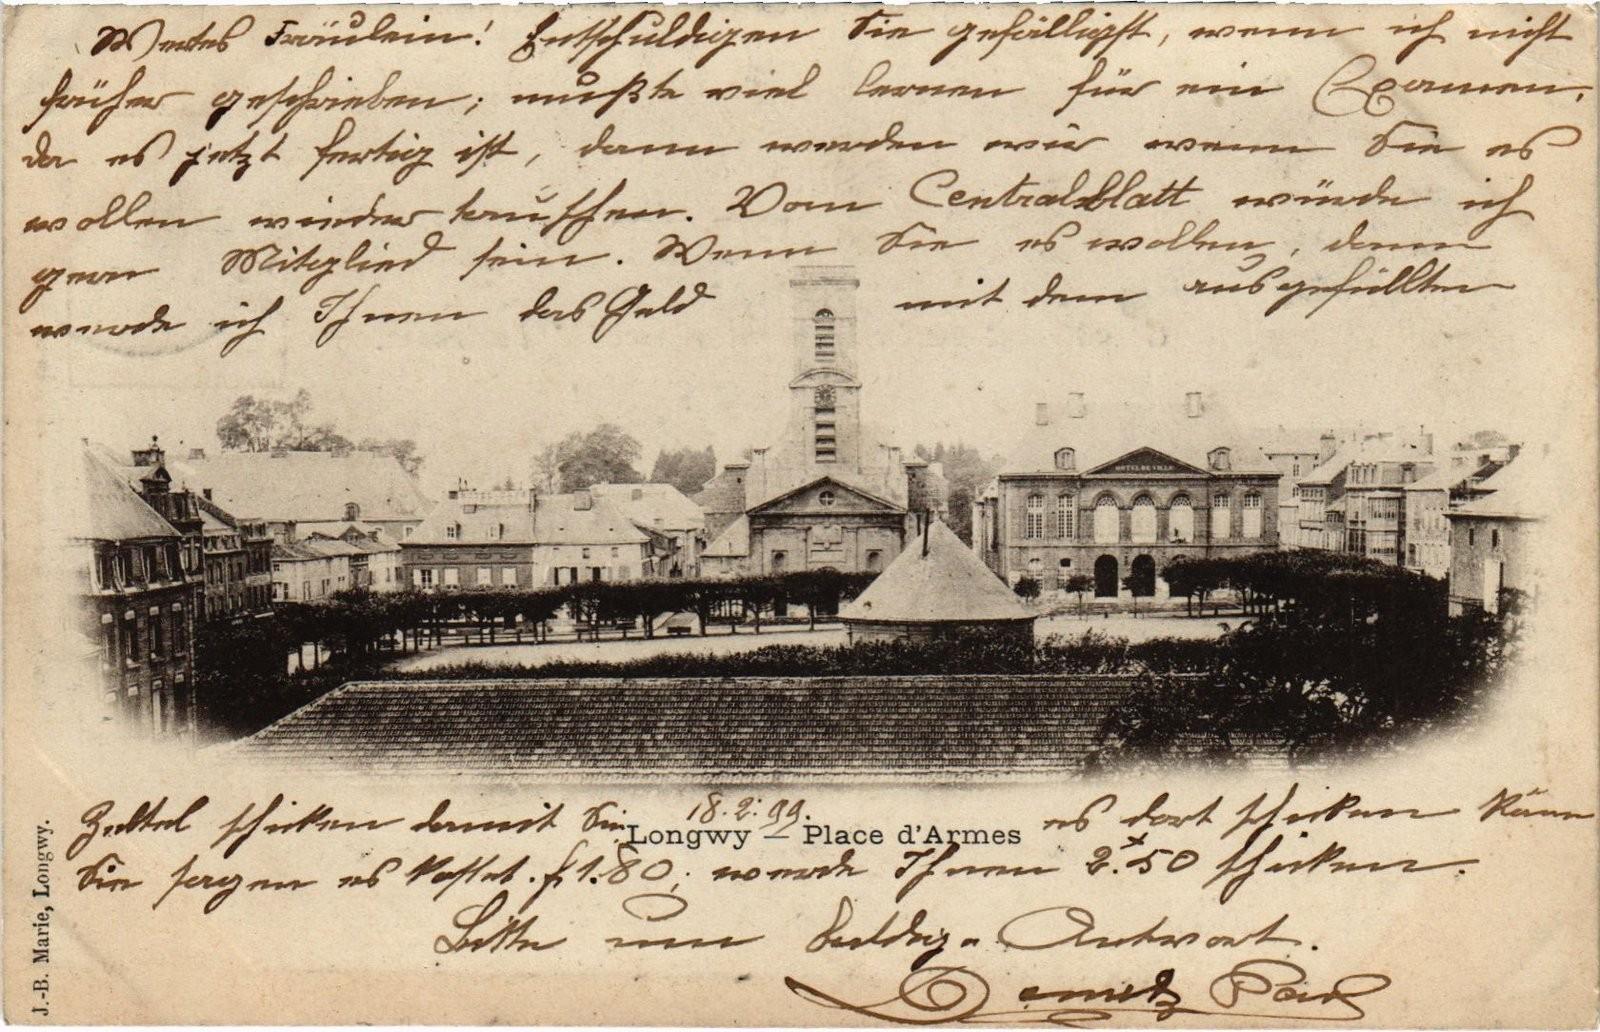 Wertes Fräulein! Entschuldigen Sie gefälligst, wenn ich nicht
früher geschrieben; mußte viel lernen für ein Examen,
da es jetzt fertig ist, dann werden wir wenn Sie es
wollen wieder tauschen. Vom Centralblatt würde ich
gern Mitglied sein. Wenn Sie es wollen, dann
werde ich Ihnen das Geld mit dem ausgefüllten
HOTEL DE VILLE
Zettel schicken damit Sie es dort schicken
18.2.99.
Longwy — Place d'Armes
Sie sagen es kostet f 1.80; werde Ihnen 2.50 schicken.
Bitte um baldig. Antwort.
J.-B. Marie, Longwy.